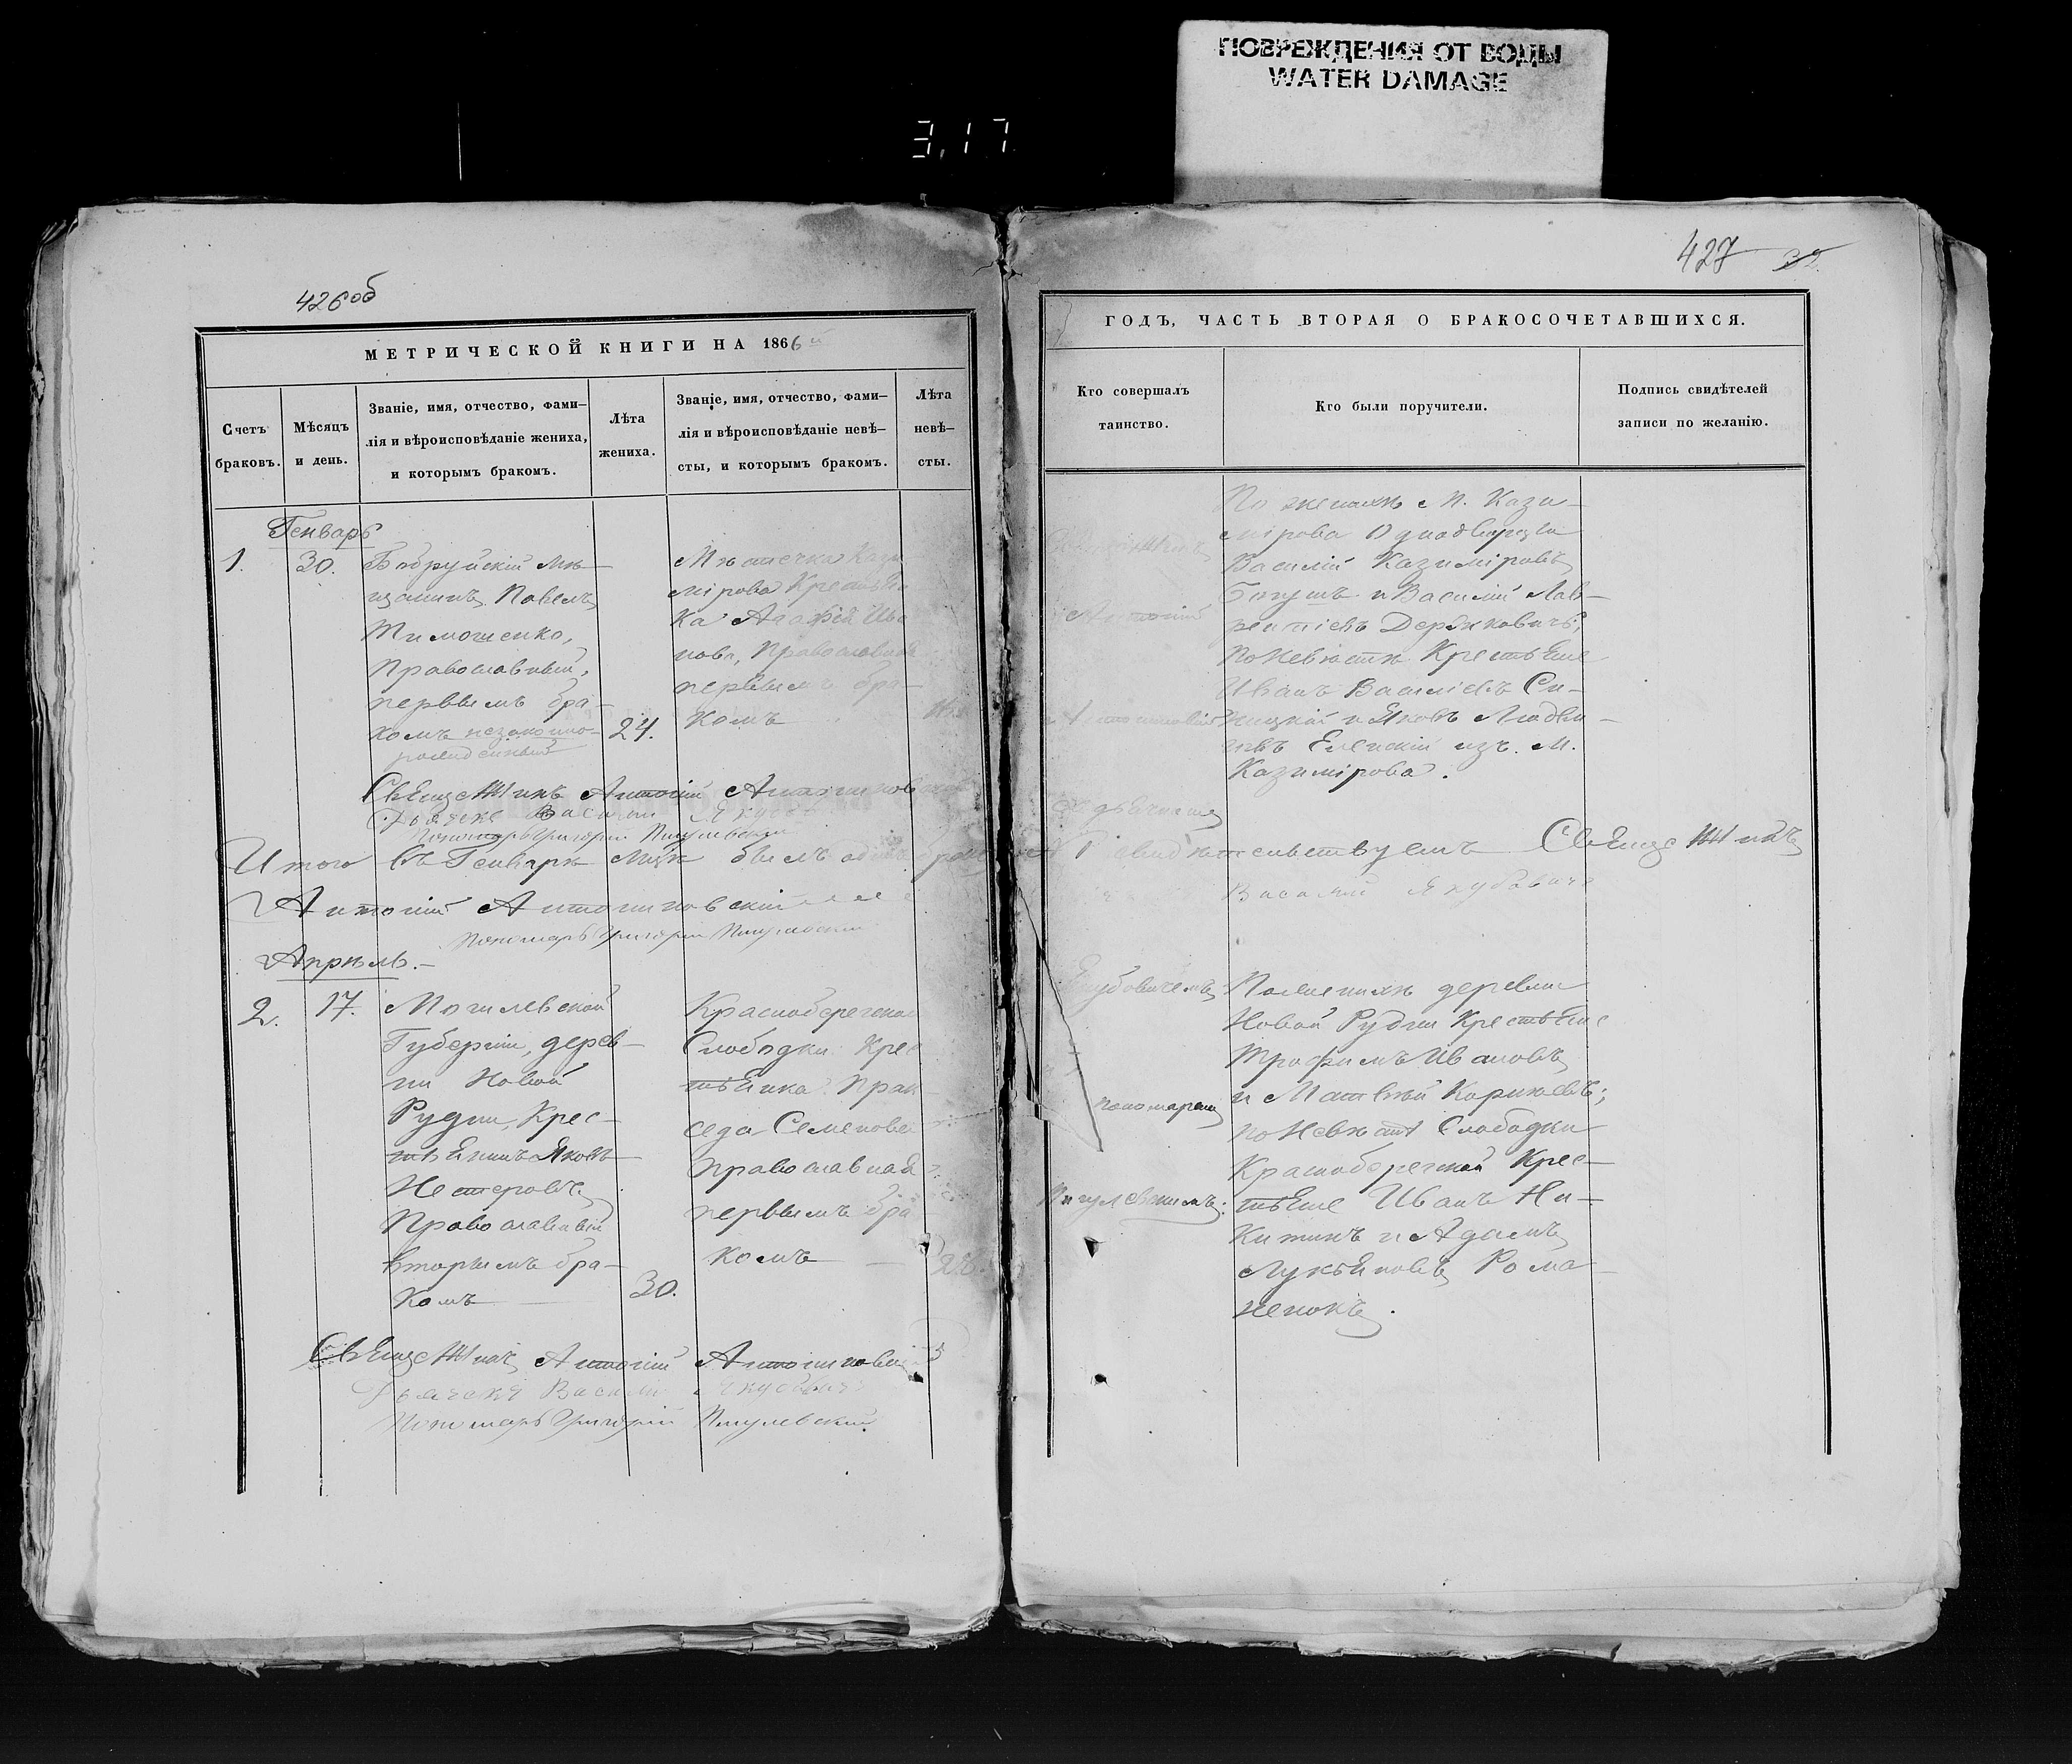 ПОВРЕЖДЕНИЯ ОТ ВОДЫ
WATER DAMAGE
3,17
426об
МЕТРИЧЕСКОЙ КНИГИ НА 1866
Счетъ браковъ.
Мѣсяцъ и день.
Званіе, имя, отчество, фами-
лія и вѣроисповѣданіе жениха,
и которымъ бракомъ.
Лѣта жениха.
Званіе, имя, отчество, фами-
лія и вѣроисповѣданіе невѣ-
сты, и которымъ бракомъ.
Лѣта невѣ-
сты.
Генварь
1.
30.
Бобруйскій мѣ-
щанинъ Павелъ
Тимошенко,
Православный,
первымъ бра-
комъ незаконно-
рожденный
24.
Мѣстечка Кази
мірова Крестьян
ка Агафія Ива
нова, Православная
первымъ бра-
комъ
Священникъ Антоній Антониновскій
Василій Якубов
Пономарь Григорій Пигулевскій
Итого въ Генварѣ м-цѣ былъ одинъ бракъ
Антоній Антониновскій
Пономарь Григорій Пигулевскій
Апрѣль.-
2.
17.
Могилевской
Губерніи, дерев-
ни Новой
Рудни, Крес-
тьянинъ Яковъ
Нестеровъ
Православный
вторымъ бра-
комъ
30.
Краснобережской
Слободки Крес
тьянка Прак
седа Семенова
православная
первымъ бра
комъ
22.
Священникъ Антоній Антониновскій
Дьячекъ Василій Якубович
Пономарь Григорій Пигулевскій.
427 32
ГОДЪ, ЧАСТЬ ВТОРАЯ О БРАКОСОЧЕТАВШИХСЯ.
Кто совершалъ
таинство.
Кто были поручители.
Подпись свидѣтелей
записи по желанію.
Антоній
По женихѣ М. Кази-
мірова Однодворцы
Василій Казиміровъ
Богушъ и Василій Лав-
рентіевъ Деружковичъ;
по невѣстѣ Крестьяне
Иванъ Василіевъ Си-
ницкій и Яковъ Людви-
говъ Еленскій изъ М.
Казимірова.
свидѣтельствуемъ Священникъ
Василій Якубовичъ
Якубовичемъ
пономарем
Пигулевскимъ:
По женихѣ деревни
Новой Рудни Крестьяне
Трофимъ Ивановъ
и Матвѣй Корнѣевъ;
по невѣстѣ Слободки
Краснобережской Крес-
тьяне Иванъ Ни-
китинъ и Адамъ
Лукьяновъ Рома-
ненокъ.